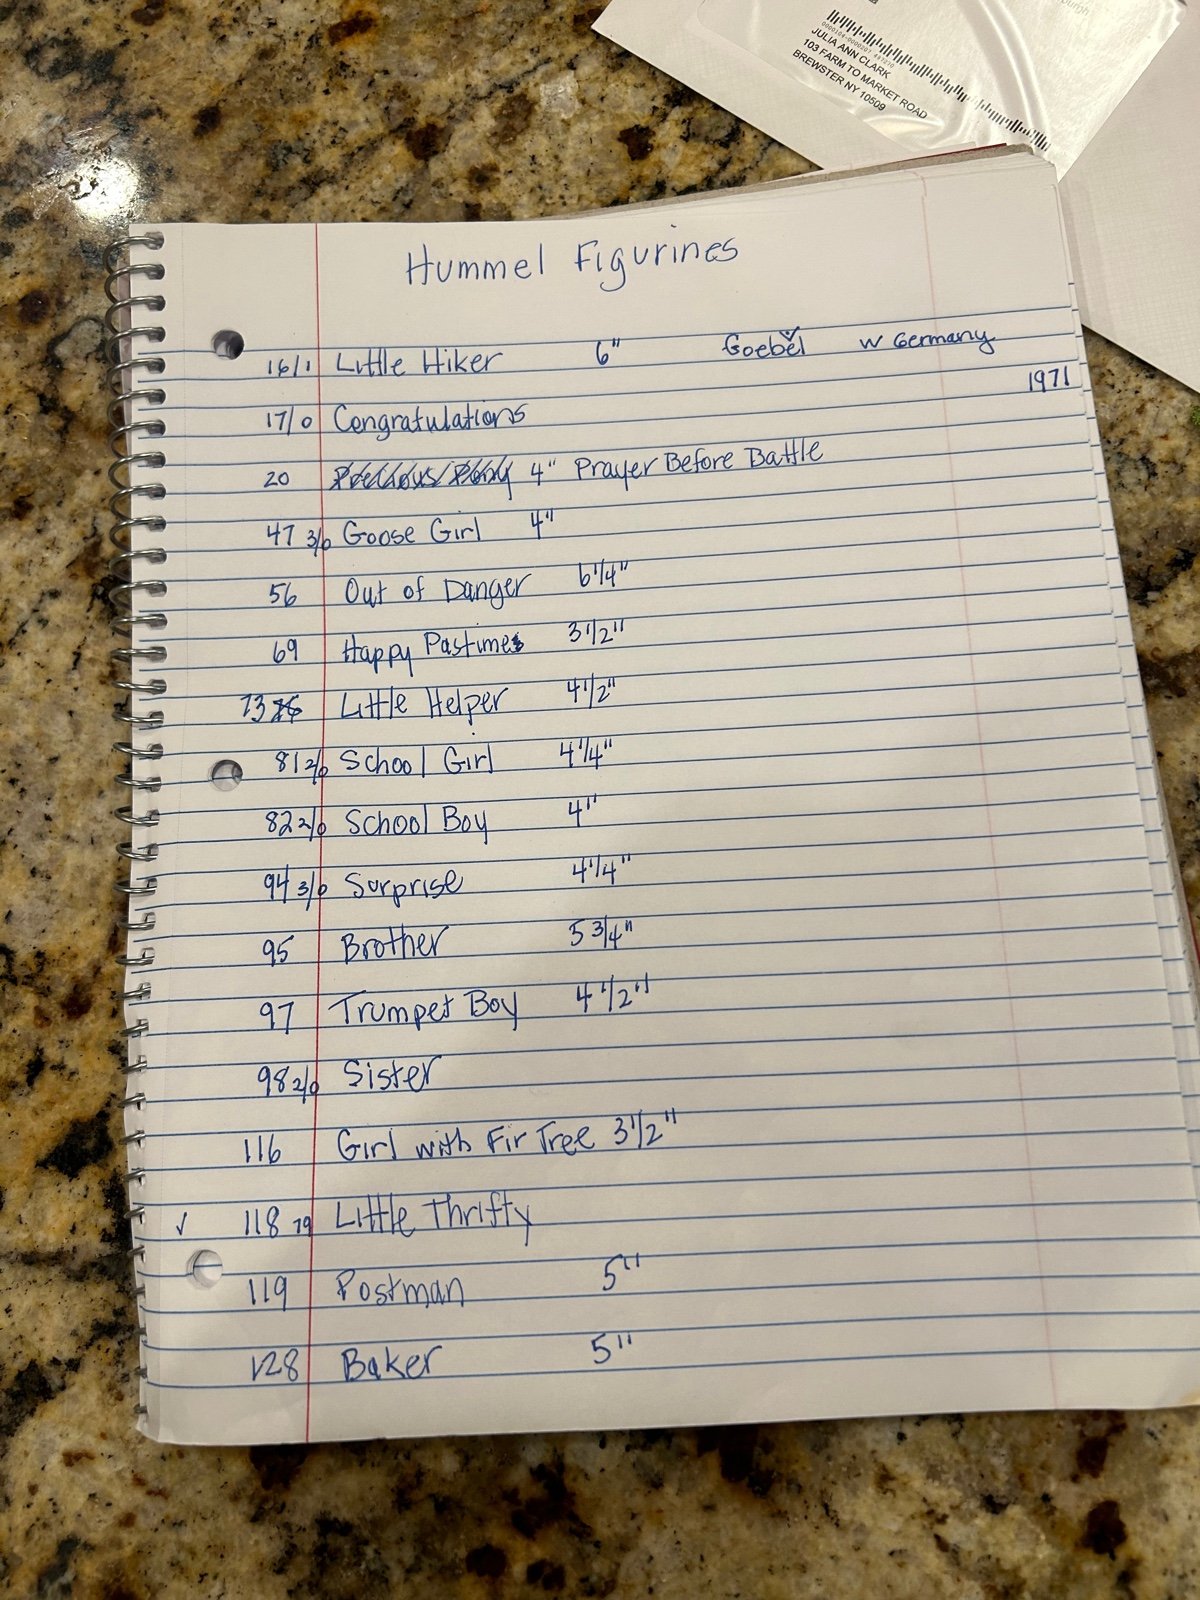 JULIA ANN CLARK
103 FARM TO MARKET ROAD
BREWSTER NY 10509
Hummel Figurines
16/1 Little Hiker 6" Goebel W Germany
1971
17/0 Congratulations
20 4" Prayer Before Battle
47 3/0 Goose Girl 4"
56 Out of Danger 6 1/4"
69 Happy Pastimes 3 1/2"
73 Little Helper 4 1/2"
81 2/0 School Girl 4 1/4"
82 2/0 School Boy 4"
94 3/0 Surprise 4 1/4"
95 Brother 5 3/4"
97 Trumpet Boy 4 1/2"
98 2/0 Sister
116 Girl with Fir Tree 3 1/2"
✓ 118 79 Little Thrifty
119 Postman 5"
128 Baker 5"